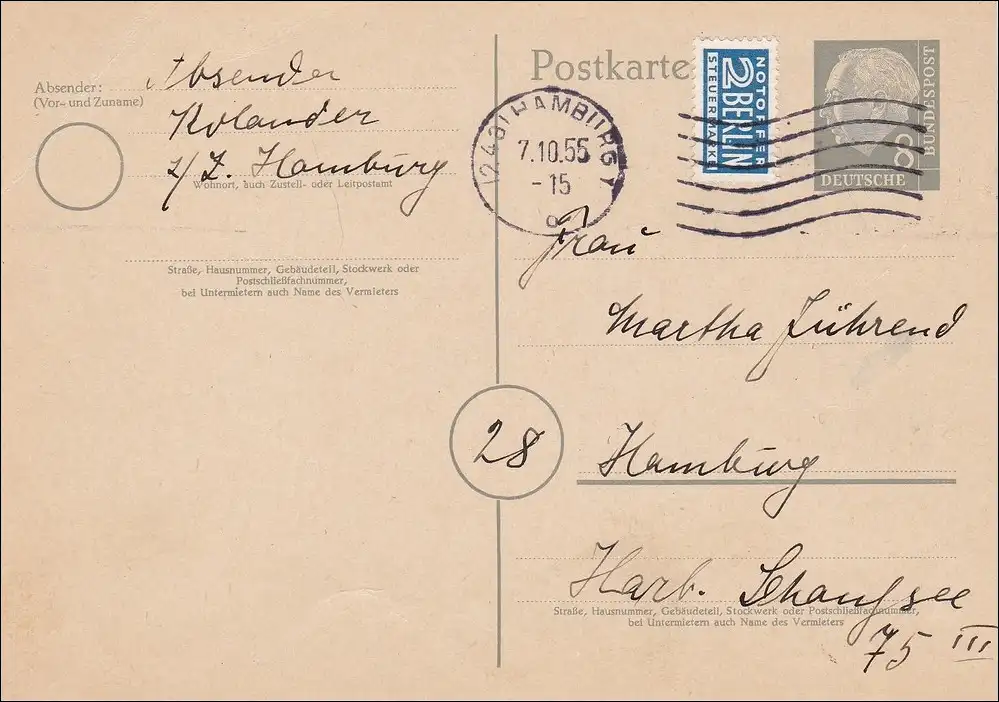 Absender:
(Vor- und Zuname)
Absender
Rolander
z/Z. Hamburg
Wohnort, auch Zustell- oder Leitpostamt
Straße, Hausnummer, Gebäudeteil, Stockwerk oder
Postschließfachnummer,
bei Untermietern auch Name des Vermieters
Postkarte
NOTOPFER
2 BERLIN
STEUERMARKE
8
BUNDESPOST
DEUTSCHE
(24a) HAMBURG 1
7.10.55
-15
o
Frau
Martha Führend
28
Hamburg
Harb.
Straße, Hausnummer, Gebäudeteil, Stockwerk oder Postschließfachnummer,
bei Untermietern auch Name des Vermieters
75 III